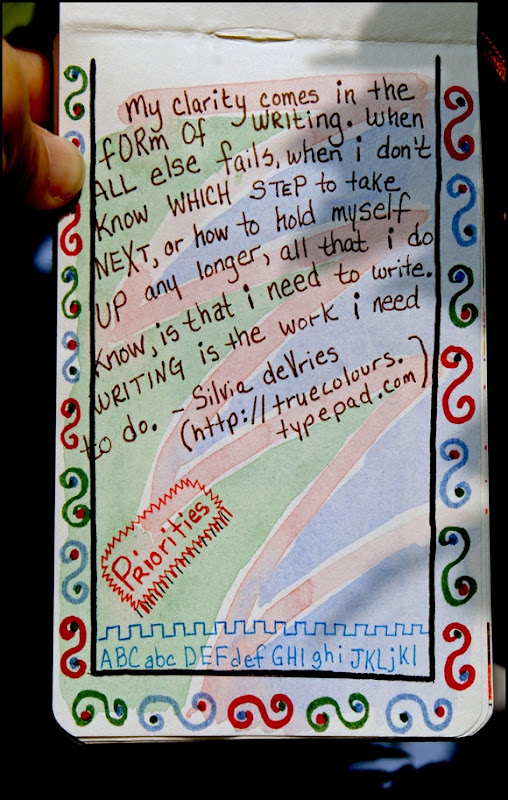 my clarity comes in the
fORm Of WRITING. When
ALL else fails, when i don't
KNOW WHICH STEP to take
NEXT, or how to hold myself
UP any longer, all that i do
KNOW, is that i need to write.
WRITING is the work i need
to do. - Silvia deVries
(http://truecolours.
typepad.com)
PRiORities
ABC abc DEF def GHI ghi JKL jkl